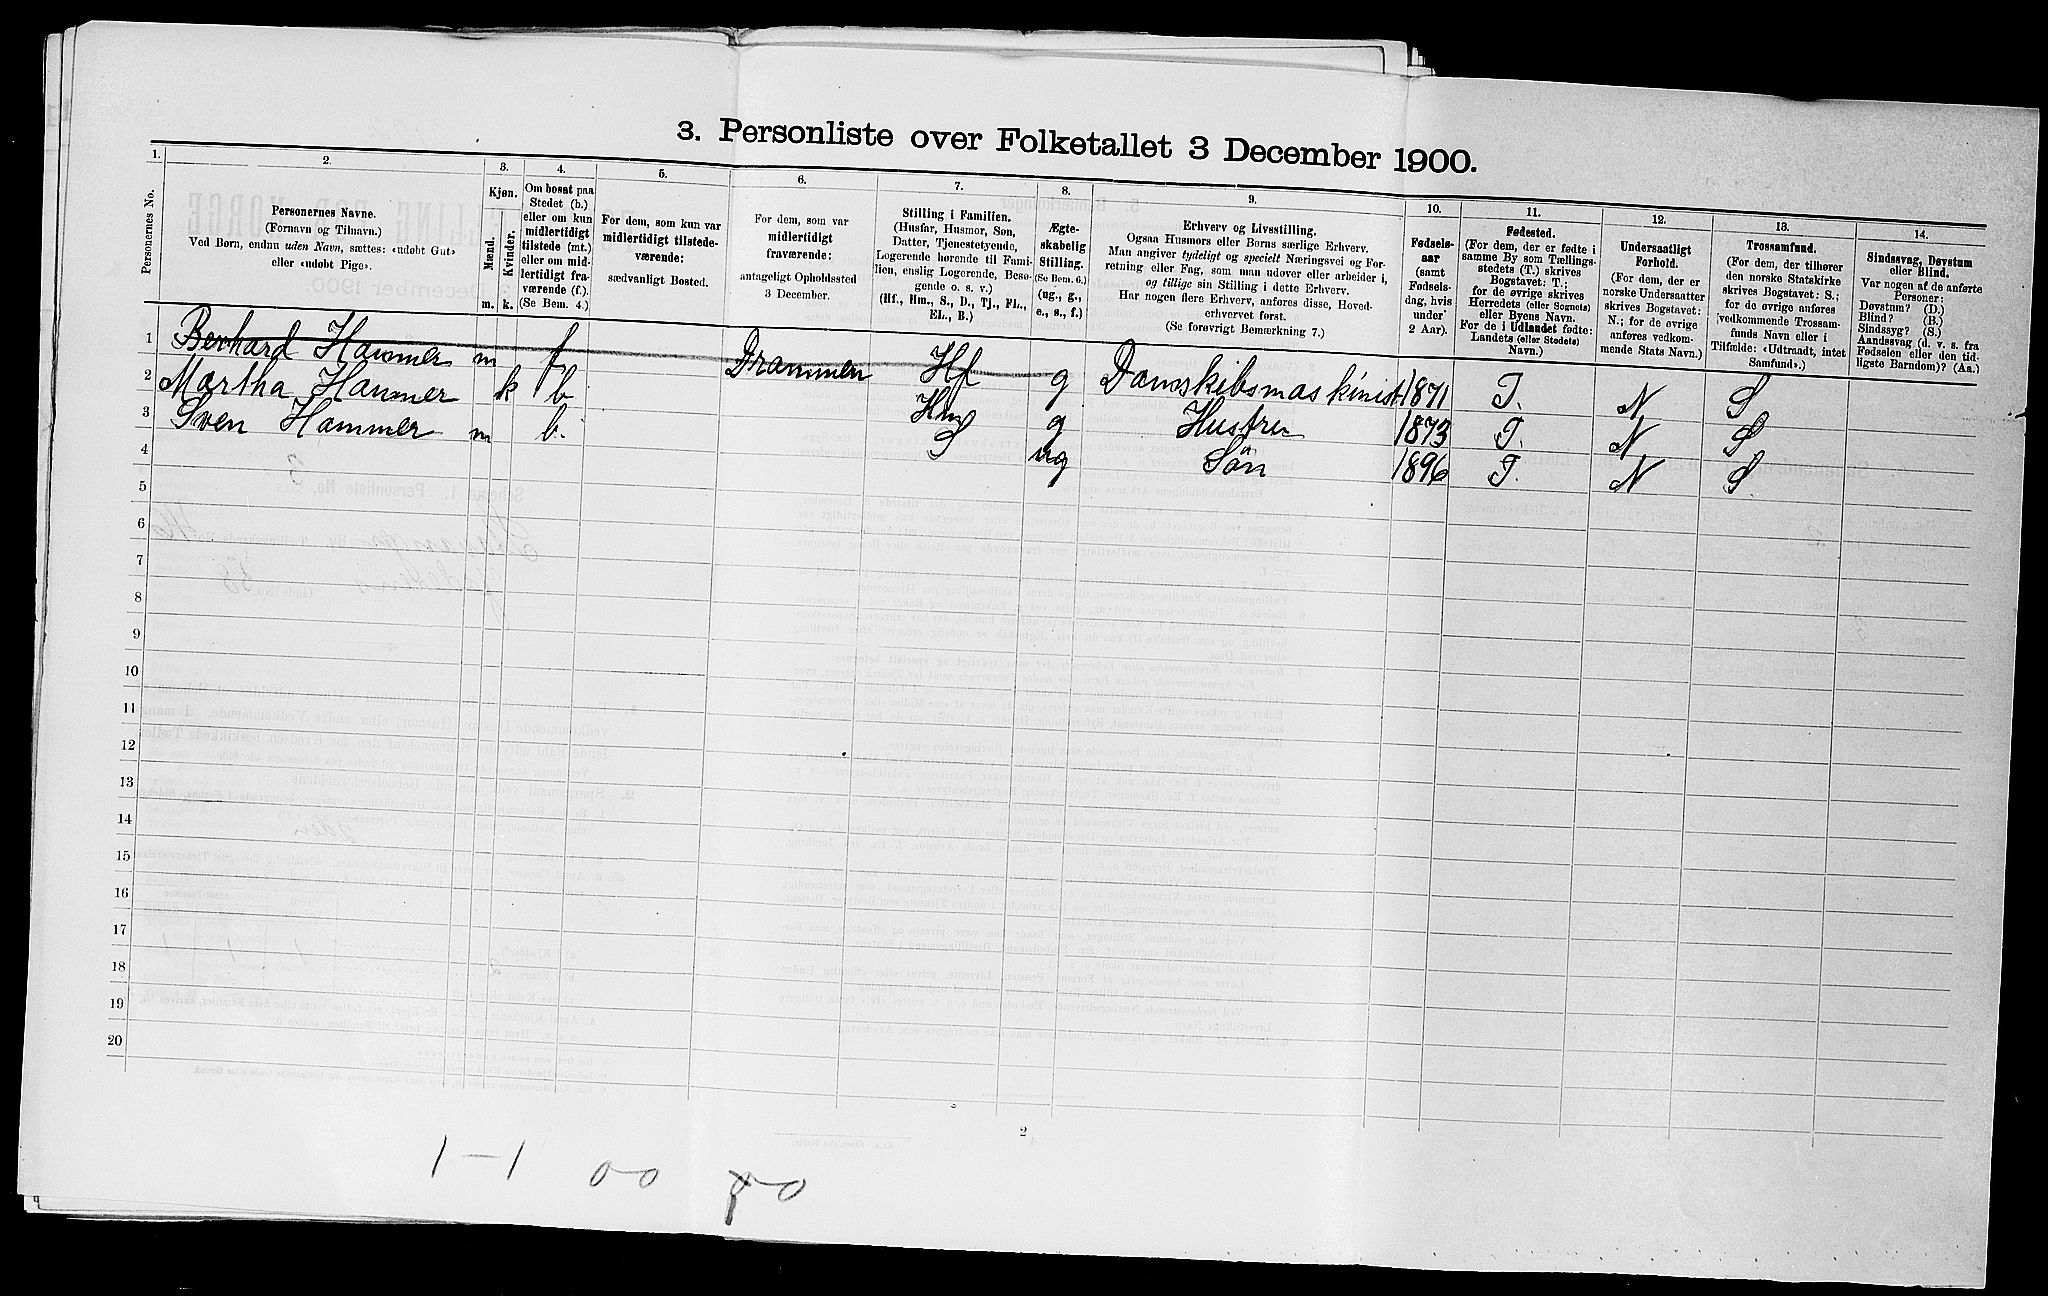 3. Personliste over Folketallet 3 December 1900.
1. 2. 3. 4. 5. 6. 7. 8. 9. 10. 11. 12. 13. 14.
Personernes No.
Personernes Navne.
(Fornavn og Tilnavn.)
Ved Børn, endnu uden Navn, sættes: «udøbt Gut»
eller «udøbt Pige».
Kjøn.
Mænd.
Kvinder.
m. k.
Om bosat paa
Stedet (b.)
eller om kun
midlertidigt
tilstede (mt.)
eller om mid-
lertidigt fra-
værende (f.).
(Se Bem. 4.)
For dem, som kun var
midlertidigt tilstede-
værende:
sædvanligt Bosted.
For dem, som var
midlertidigt
fraværende:
antageligt Opholdssted
3 December.
Stilling i Familien.
(Husfar, Husmor, Søn,
Datter, Tjenestetyende,
Logerende hørende til Fami-
lien, enslig Logerende, Besø-
gende o. s. v.)
(Hf., Hm., S., D., Tj., FL.,
EL., B.)
Ægte-
skabelig
Stilling.
(Se Bem. 6.)
(ug., g.,
e., s., f.)
Erhverv og Livsstilling.
Ogsaa Husmors eller Børns særlige Erhverv.
Man angiver tydeligt og specielt Næringsvei og For-
retning eller Fag, som man udøver eller arbeider i,
og tillige sin Stilling i dette Erhverv.
Har nogen flere Erhverv, anføres disse, Hoved-
erhvervet først.
(Se forøvrigt Bemærkning 7.)
Fødsels-
aar
(samt
Fødsels-
dag, hvis
under
2 Aar).
Fødested.
(For dem, der er fødte i
samme By som Tællings-
stedets (T.) skrives
Bogstavet: T.;
for de øvrige skrives
Herredets (eller Sognets)
eller Byens Navn.
For de i Udlandet fødte:
Landets (eller Stedets)
Navn.)
Undersaatligt
Forhold.
(For dem, der er
norske Undersaatter
skrives Bogstavet:
N.; for de øvrige
anføres vedkom-
mende Stats Navn.)
Trossamfund.
(For dem, der tilhører
den norske Statskirke
skrives Bogstavet: S.;
for de øvrige anføres
vedkommende Trossam-
funds Navn eller i
Tilfælde: «Udtraadt, intet
Samfund».)
Sindssvag, Døvstum
eller Blind.
Var nogen af de anførte
Personer:
Døvstum? (D.)
Blind? (B.)
Sindssyg? (S.)
Aandssvag (d. v. s. fra
Fødselen eller den tid-
ligste Barndom)? (Aa.)
1 Berhard Hammer m f Drammen Hf g Damskibsmaskinist 1871 T. N S
2 Martha Hammer k b Hm g Hustru 1873 T. N S
3 Sven Hammer m b. S ug Sön 1896 T. N S
4
5
6
7
8
9
10
11
12
13
14
15
16
17
18
19
20
2
1–1 00 00